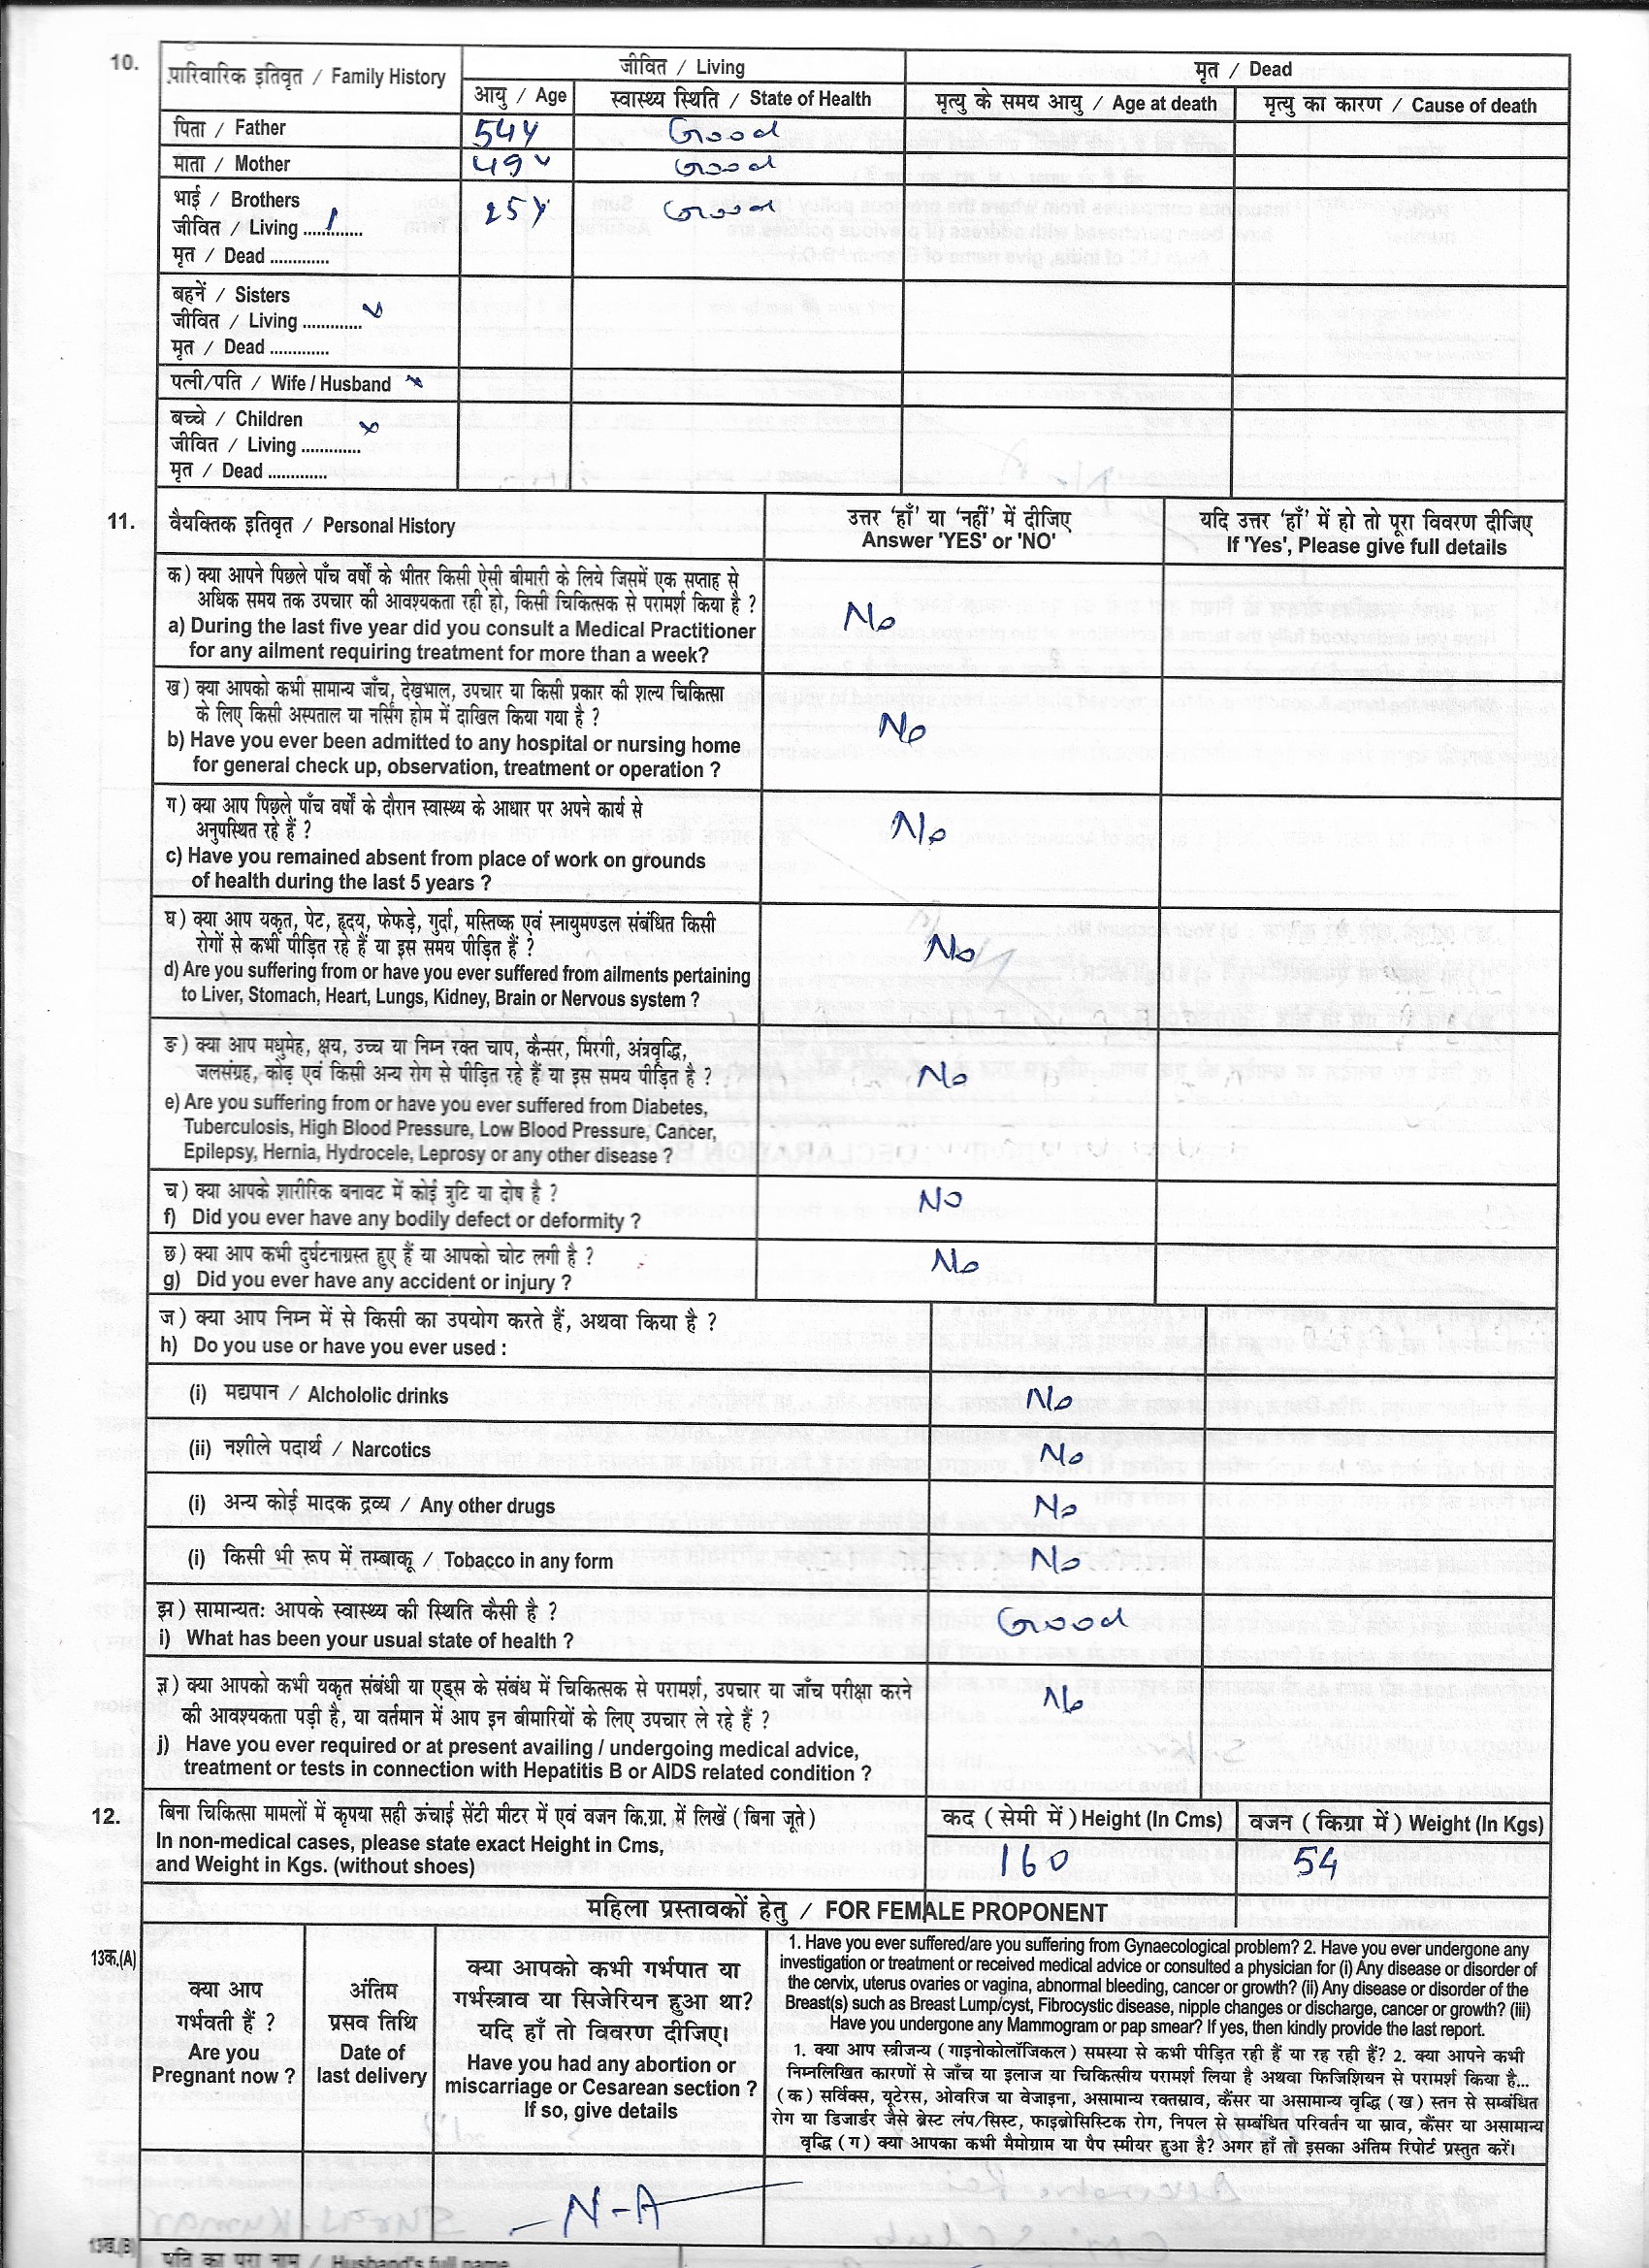 10.
पारिवारिक इतिवृत / Family History
जीवित / Living
मृत / Dead
आयु / Age
स्वास्थ्य स्थिति / State of Health
मृत्यु के समय आयु / Age at death
मृत्यु का कारण / Cause of death
पिता / Father 54Y Good
माता / Mother 49Y Good
भाई / Brothers 25Y Good
जीवित / Living ....1........
मृत / Dead .............
बहनें / Sisters
जीवित / Living ............. x
मृत / Dead .............
पत्नी/पति / Wife / Husband x
बच्चे / Children x
जीवित / Living .............
मृत / Dead .............
11.
वैयक्तिक इतिवृत / Personal History
उत्तर 'हाँ' या 'नहीं' में दीजिए
Answer 'YES' or 'NO'
यदि उत्तर 'हाँ' में हो तो पूरा विवरण दीजिए
If 'Yes', Please give full details
क) क्या आपने पिछले पाँच वर्षों के भीतर किसी ऐसी बीमारी के लिये जिसमें एक सप्ताह से
अधिक समय तक उपचार की आवश्यकता रही हो, किसी चिकित्सक से परामर्श किया है ?
a) During the last five year did you consult a Medical Practitioner
for any ailment requiring treatment for more than a week?
No
ख) क्या आपको कभी सामान्य जाँच, देखभाल, उपचार या किसी प्रकार की शल्य चिकित्सा
के लिए किसी अस्पताल या नर्सिंग होम में दाखिल किया गया है ?
b) Have you ever been admitted to any hospital or nursing home
for general check up, observation, treatment or operation ?
No
ग) क्या आप पिछले पाँच वर्षों के दौरान स्वास्थ्य के आधार पर अपने कार्य से
अनुपस्थित रहे हैं ?
c) Have you remained absent from place of work on grounds
of health during the last 5 years ?
No
घ) क्या आप यकृत, पेट, हृदय, फेफड़े, गुर्दा, मस्तिष्क एवं स्नायुमण्डल संबंधित किसी
रोगों से कभी पीड़ित रहे हैं या इस समय पीड़ित हैं ?
d) Are you suffering from or have you ever suffered from ailments pertaining
to Liver, Stomach, Heart, Lungs, Kidney, Brain or Nervous system ?
No
ङ) क्या आप मधुमेह, क्षय, उच्च या निम्न रक्त चाप, कैन्सर, मिरगी, अंत्रवृद्धि,
जलसंग्रह, कोढ़ एवं किसी अन्य रोग से पीड़ित रहे हैं या इस समय पीड़ित है ?
e) Are you suffering from or have you ever suffered from Diabetes,
Tuberculosis, High Blood Pressure, Low Blood Pressure, Cancer,
Epilepsy, Hernia, Hydrocele, Leprosy or any other disease ?
No
च) क्या आपके शारीरिक बनावट में कोई त्रुटि या दोष है ?
f) Did you ever have any bodily defect or deformity ?
No
छ) क्या आप कभी दुर्घटनाग्रस्त हुए हैं या आपको चोट लगी है ?
g) Did you ever have any accident or injury ?
No
ज) क्या आप निम्न में से किसी का उपयोग करते हैं, अथवा किया है ?
h) Do you use or have you ever used :
(i) मद्यपान / Alchololic drinks No
(ii) नशीले पदार्थ / Narcotics No
(i) अन्य कोई मादक द्रव्य / Any other drugs No
(i) किसी भी रूप में तम्बाकू / Tobacco in any form No
झ) सामान्यतः आपके स्वास्थ्य की स्थिति कैसी है ?
i) What has been your usual state of health ?
Good
ञ) क्या आपको कभी यकृत संबंधी या एड्स के संबंध में चिकित्सक से परामर्श, उपचार या जाँच परीक्षा करने
की आवश्यकता पड़ी है, या वर्तमान में आप इन बीमारियों के लिए उपचार ले रहे हैं ?
j) Have you ever required or at present availing / undergoing medical advice,
treatment or tests in connection with Hepatitis B or AIDS related condition ?
No
12.
बिना चिकित्सा मामलों में कृपया सही ऊंचाई सेंटी मीटर में एवं वजन कि.ग्रा. में लिखें (बिना जूते)
In non-medical cases, please state exact Height in Cms,
and Weight in Kgs. (without shoes)
कद ( सेमी में ) Height (In Cms)
वजन ( किग्रा में ) Weight (In Kgs)
160
54
महिला प्रस्तावकों हेतु / FOR FEMALE PROPONENT
13क.(A)
क्या आप
गर्भवती हैं ?
Are you
Pregnant now ?
अंतिम
प्रसव तिथि
Date of
last delivery
क्या आपको कभी गर्भपात या
गर्भस्त्राव या सिजेरियन हुआ था?
यदि हाँ तो विवरण दीजिए।
Have you had any abortion or
miscarriage or Cesarean section ?
If so, give details
1. Have you ever suffered/are you suffering from Gynaecological problem? 2. Have you ever undergone any
investigation or treatment or received medical advice or consulted a physician for (i) Any disease or disorder of
the cervix, uterus ovaries or vagina, abnormal bleeding, cancer or growth? (ii) Any disease or disorder of the
Breast(s) such as Breast Lump/cyst, Fibrocystic disease, nipple changes or discharge, cancer or growth? (iii)
Have you undergone any Mammogram or pap smear? If yes, then kindly provide the last report.
1. क्या आप स्त्रीजन्य (गाइनोकोलॉजिकल) समस्या से कभी पीड़ित रही हैं या रह रही हैं? 2. क्या आपने कभी
निम्नलिखित कारणों से जाँच या इलाज या चिकित्सीय परामर्श लिया है अथवा फिजिशियन से परामर्श किया है...
(क) सर्विक्स, यूटेरस, ओवरिज या वेजाइना, असामान्य रक्तस्राव, कैंसर या असामान्य वृद्धि (ख) स्तन से सम्बंधित
रोग या डिजार्डर जैसे ब्रेस्ट लंप/सिस्ट, फाइब्रोसिस्टिक रोग, निपल से सम्बंधित परिवर्तन या स्राव, कैंसर या असामान्य
वृद्धि (ग) क्या आपका कभी मैमोग्राम या पैप स्मीयर हुआ है? अगर हाँ तो इसका अंतिम रिपोर्ट प्रस्तुत करें।
- N-A
13ख.(B)
पति का पूरा नाम / Husband's full name